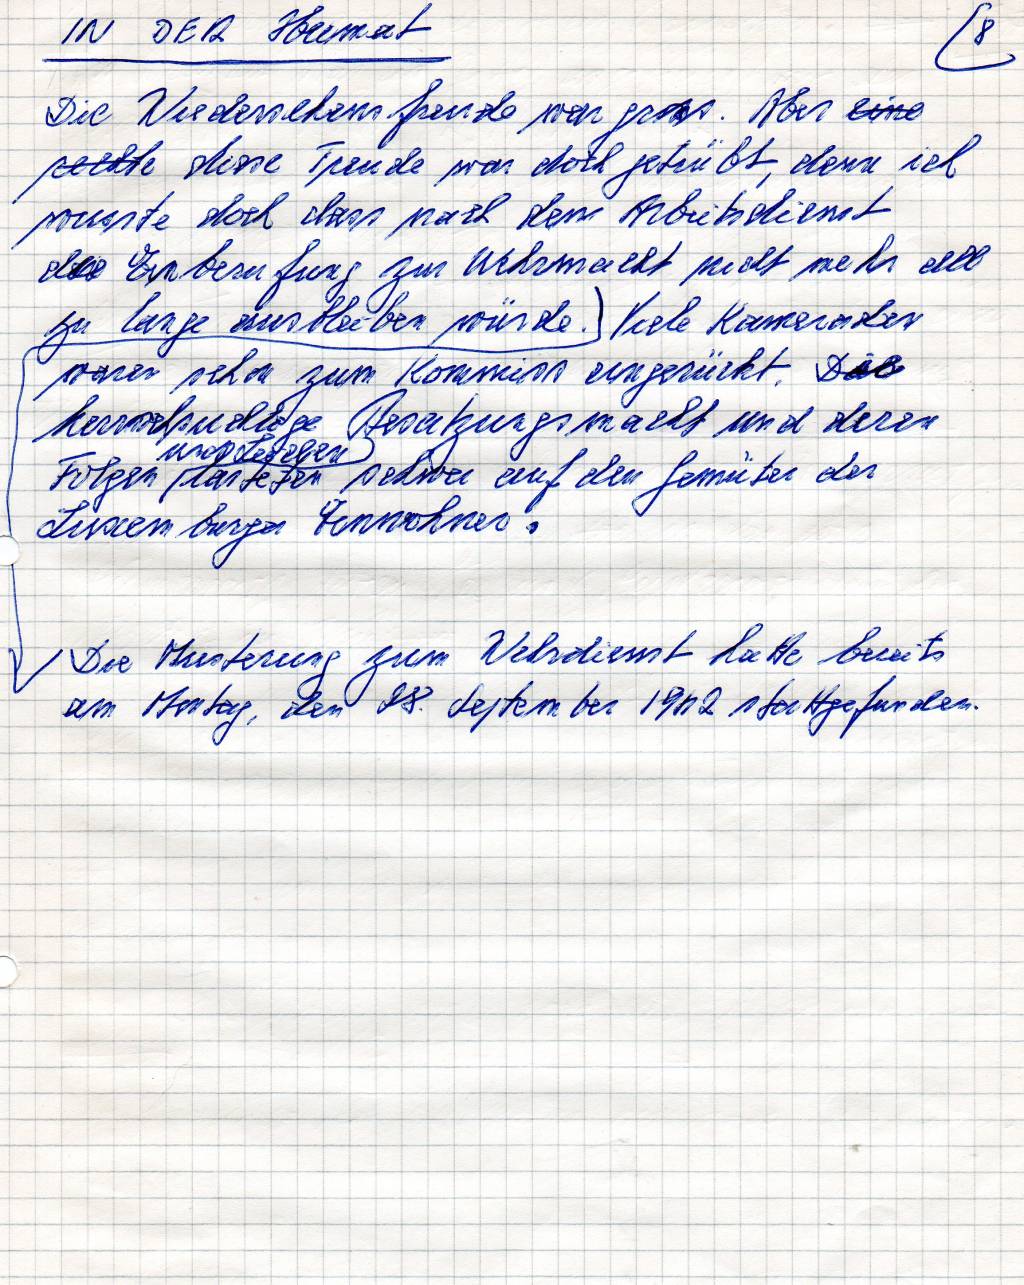 IN DER Heimat
8
Die Wiedersehensfreude war gross. Aber eine
rechte diese Freude war doch getrübt, denn ich
wusste doch dass nach dem Arbeitsdienst
die Einberufung zur Wehrmacht nicht mehr all
zu lange ausbleiben würde. Viele Kameraden
waren schon zum Kommiss eingerückt. Die
herrschsüchtige Besatzungsmacht und deren
Folgen lasteten schwer auf den Gemüter der
Luxemburger Einwohner.
Die Musterung zum Wehrdienst hatte bereits
am Montag, den 28. September 1942 stattgefunden.